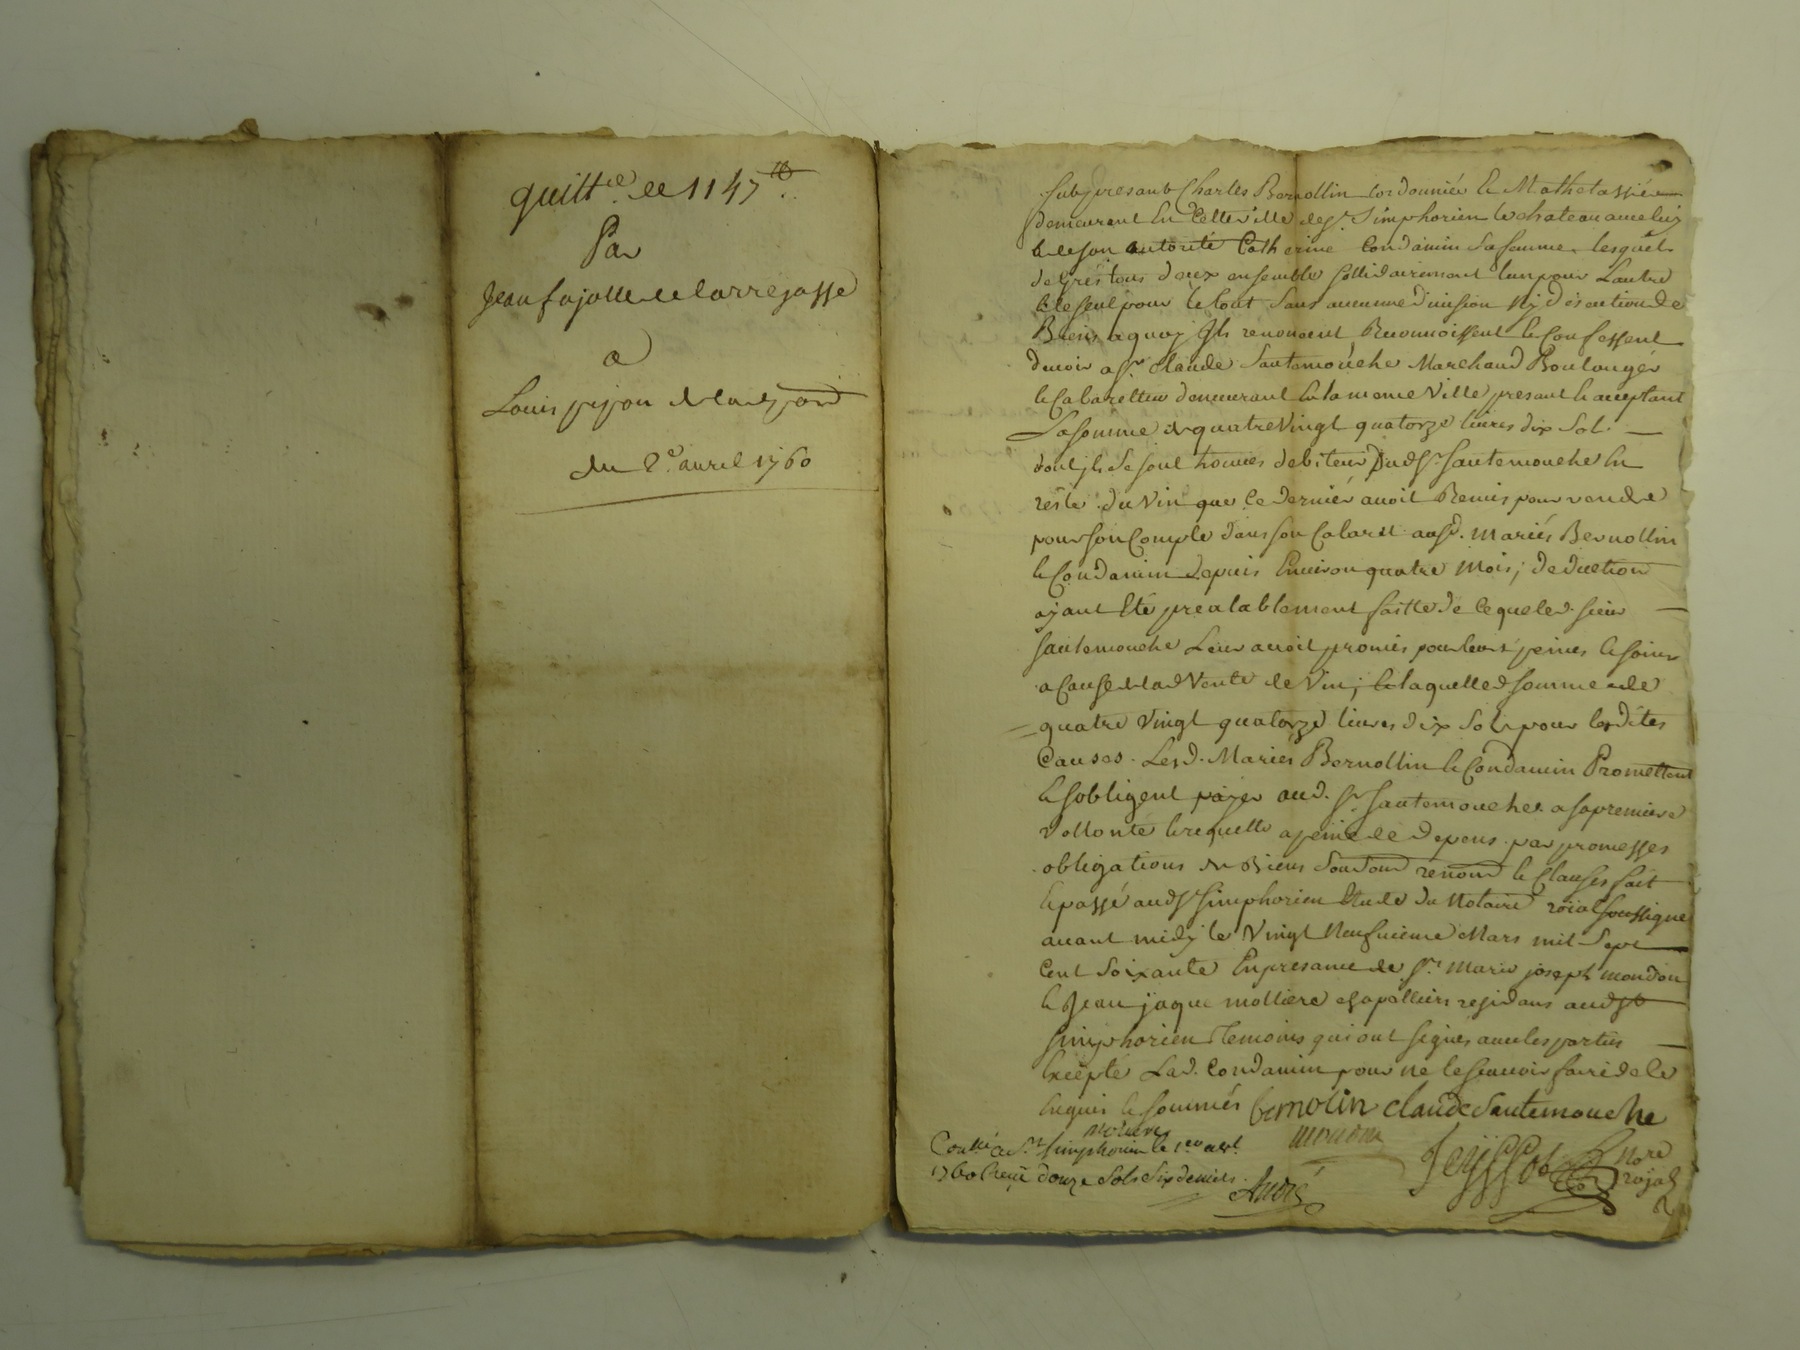 quitt.ce de 1147 tt
Par
Jean fajolle de larrejasse
a
Louis pipon de lad. parr
du 2e. avril 1760
fut presant Charles Bernollin Cordonniér et Mathelassiér
demeurant en Cette ville de St. simphorien le chateau avec luy
et de son autorité Catherine Condamin sa femme lesquels
de gres tous deux ensemble sollidairement l'un pour L'autre
et le seul pour le tout sans aucunne division ny discution de
Biens a quoy Ils renoncent Reconnoissent et Confessent
devoir a Sr. claude Sautemouche Marchand Boulangér
et Cabarettier demeurant en la meme Ville presant et acceptant
La somme de quatre Vingt quatorze livres dix Sols
dont ils se sont trouvés debiteurs dud Sr. Sautemouche en
reste du Vin que Ce derniér avoit Remis pour vendre
pour son Compte dans son Cabaret ausd. mariés Bernollin
et Condamin depuis Environ quatre Mois; deduction
ayant Eté prealablement faitte de Ce que led. sieur
Sautemouche Leur avoit promis pour leurs peines et soins
a Cause de lad Vente de Vin; et laquelle d somme de
quatre Vingt quatorze livres dix Sols pour les dites
Causes Les d. Mariés Bernollin et Condamin Promettent
et s'obligent payer aud. Sr. Sautemouche a sa premiere
Vollonté et requette a peine de depens par promesses
obligations de Biens renond et Clauses fait
et passé aud St simphorien Etude du Notaire roïal soussigné
avant midy le Vingt Neufvieme Mars mil Sept
Cent Soixante En presance de Sr. Marie joseph mondon
et Jean jaque molliere chapelliers residans aud St
simphorien temoins qui ont signés avec les parties
Excepté Lad. Condamin pour ne le scavoir faire de ce
Enquis et sommés bernolin claude Sautemouche
moliere mondon
Conllé a St. simphorien le 1er avl.
1760 Reçu douze Sols Six deniers
André
Teyssot Nore
rojal